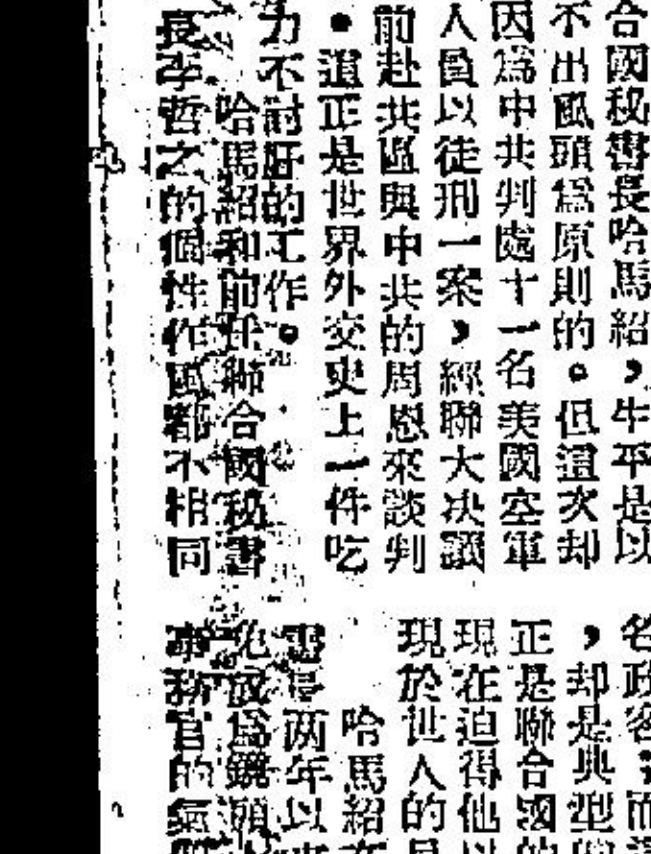 合國秘書長哈馬紹，生平是以
不出風頭爲原則的。但這次却
因爲中共判處十一名美國空軍
人員以徒刑一案，經聯大決議
前赴共區與中共的周恩來談判
。這正是世界外交史上一件吃
力不討肝的工作。
哈馬紹和前任聯合國秘書
長李哲之的個性作風都不相同
名政客
，却是典型
正是聯合國的
現在迫得他以
現於世人的
哈馬紹
書長两年以來
爲鏡頭
事務官的氣